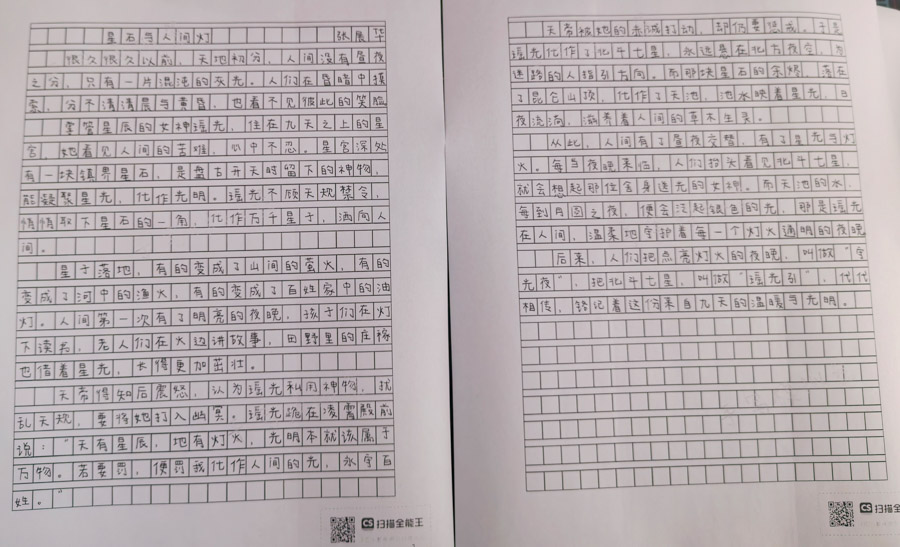 星石与人间灯 张展华
很久很久以前，天地初分，人间没有昼夜
之分，只有一片混沌的灰光。人们在昏暗中摸
索，分不清清晨与黄昏，也看不见彼此的笑脸
掌管星辰的女神瑶光，住在九天之上的星
宫，她看见人间的苦难，心中不忍。星宫深处
有一块镇界星石，是盘古开天时留下的神物，
能凝聚星光，化作光明。瑶光不顾天规禁令，
悄悄取下星石的一角，化作万千星子，洒向人
间。
星子落地，有的变成了山间的萤火，有的
变成了河中的渔火，有的变成了百姓家中的油
灯。人间第一次有了明亮的夜晚，孩子们在灯
下读书，老人们在火边讲故事，田野里的庄稼
也借着星光，长得更加茁壮。
天帝得知后震怒，认为瑶光私用神物，扰
乱天规，要将她打入幽冥。瑶光跪在凌霄殿前
说：“天有星辰，地有灯火，光明本就该属于
万物。若要罚，便罚我化作人间的光，永守百
姓。”
天帝被她的赤诚打动，却仍要惩戒。于是
瑶光化作了北斗七星，永远悬在北方夜空，为
迷路的人指引方向。而那块星石的余烬，落在
了昆仑山顶，化作了天池，池水映着星光，日
夜流淌，滋养着人间的草木生灵。
从此，人间有了昼夜交替，有了星光与灯
火。每当夜晚来临，人们抬头看见北斗七星，
就会想起那位舍身送光的女神。而天池的水，
每到月圆之夜，便会泛起银色的光，那是瑶光
在人间，温柔地守护着每一个灯火通明的夜晚
后来，人们把点亮灯火的夜晚，叫做“守
光夜”，把北斗七星，叫做“瑶光引”，代代
相传，铭记着这份来自九天的温暖与光明。
CS 扫描全能王
CS 扫描全